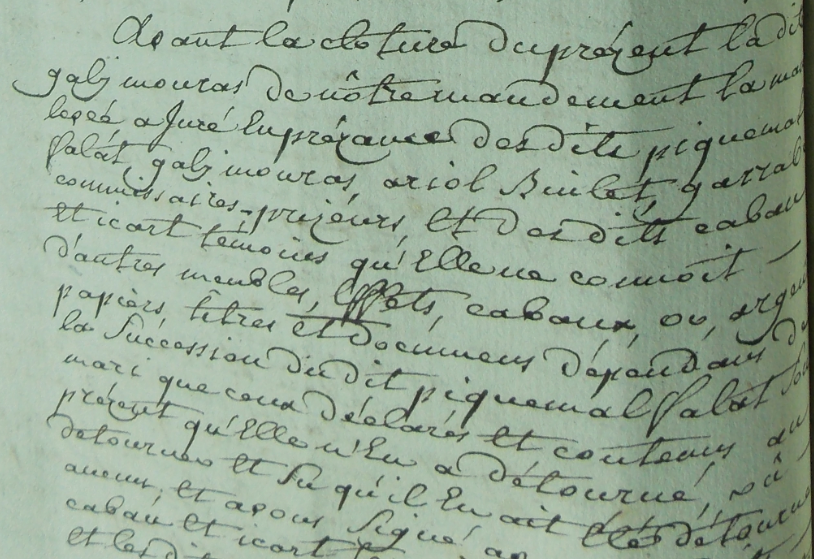 Avant la cloture du prézent la dit
galy mouras de nôtre mandement la main
levée a Juré En prézance des dits piquemal
Salat galy mouras, ariol Builet, garrabé
commissaires-prizeurs, et des dits cabau
et icart témoins qu'Elle ne connoit
d'autres meubles, Effets, cabaux, ou, argent
papiers, titres et documens dépendans de
la Succession du dit piquemal Salat Son
mari que ceux déclarés et contenus au
prézent qu'Elle n'En a détourné, sû
détourner et Su qu'il En ait été détourné
aucun, et avons Signé,
cabau et icart
et les